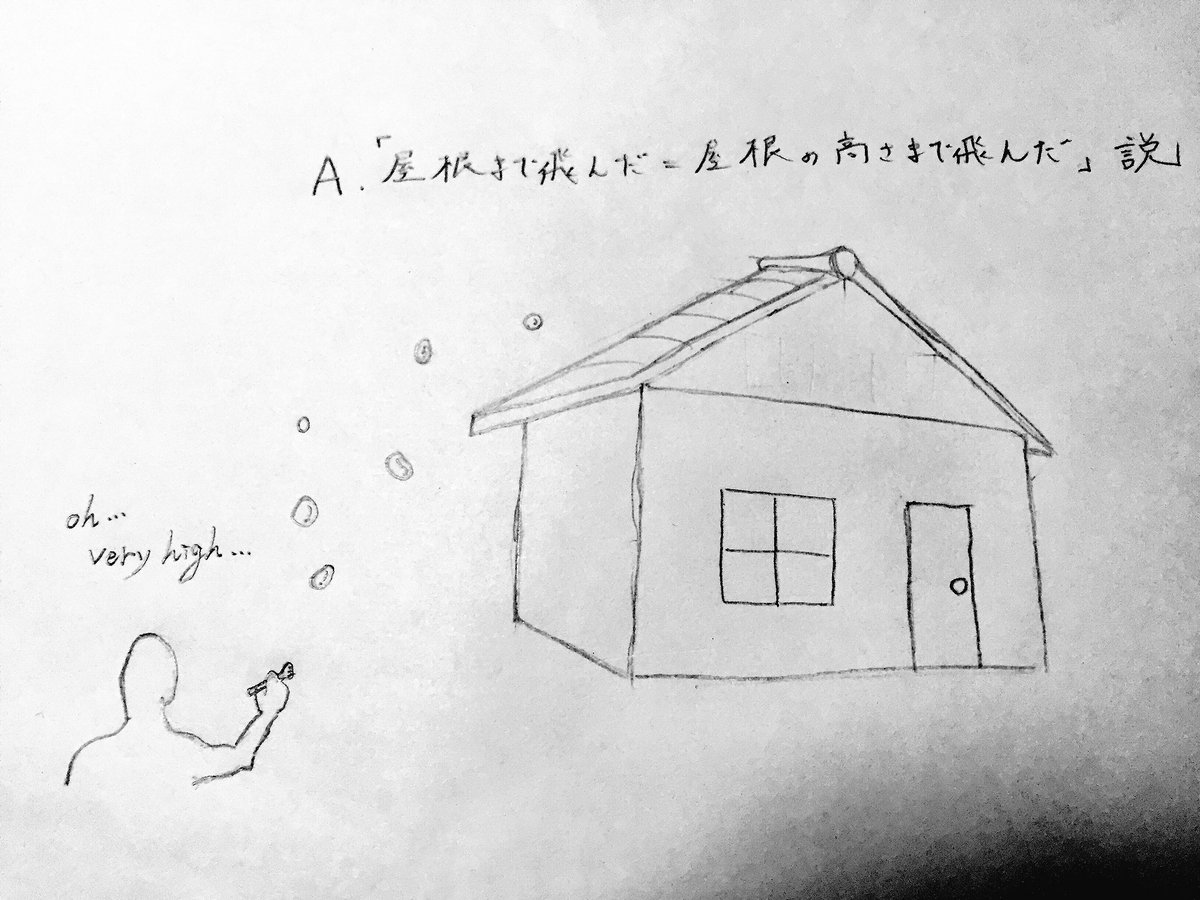 A.「屋根まで飛んだ=屋根の高さまで飛んだ」説
oh…
very high…